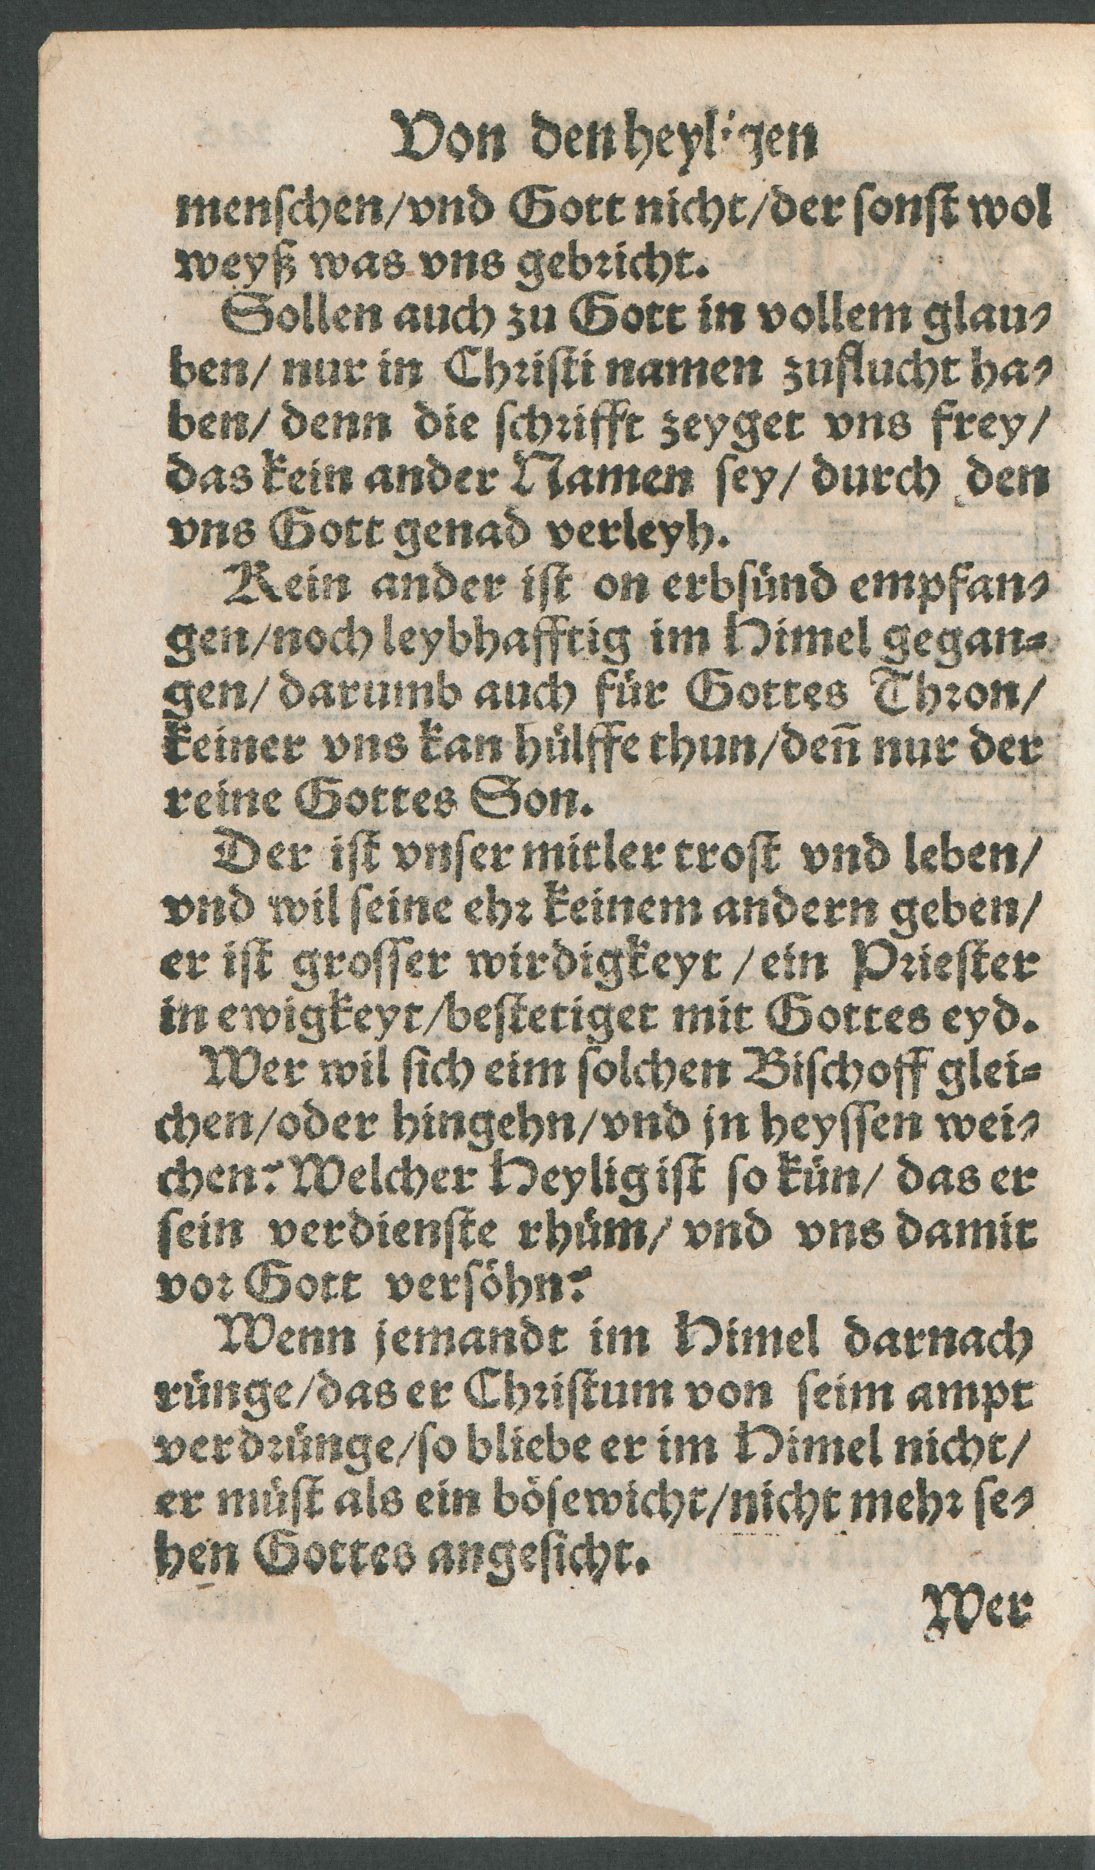 Von den heyligen
menschen/vnd Gott nicht/der sonst wol
weyß was vns gebricht.
Sollen auch zu Gott in vollem glau-
ben/ nur in Christi namen zuflucht ha-
ben/ denn die schrifft zeyget vns frey/
das kein ander Namen sey/ durch den
vns Gott genad verleyh.
Kein ander ist on erbsünd empfan-
gen/noch leybhafftig im Himel gegan-
gen/ darumb auch für Gottes Thron/
keiner vns kan hülffe thun/den̄ nur der
reine Gottes Son.
Der ist vnser mitler trost vnd leben/
vnd wil seine ehr keinem andern geben/
er ist grosser wirdigkeyt /ein Priester
in ewigkeyt/bestetiget mit Gottes eyd.
Wer wil sich eim solchen Bischoff glei-
chen/oder hingehn/vnd jn heyssen wei-
chen? Welcher Heylig ist so kün/ das er
sein verdienste rhüm/ vnd vns damit
vor Gott versöhn?
Wenn jemandt im Himel darnach
rünge/das er Christum von seim ampt
verdrünge/so bliebe er im Himel nicht/
er müst als ein bösewicht/nicht mehr se-
hen Gottes angesicht.
Wer